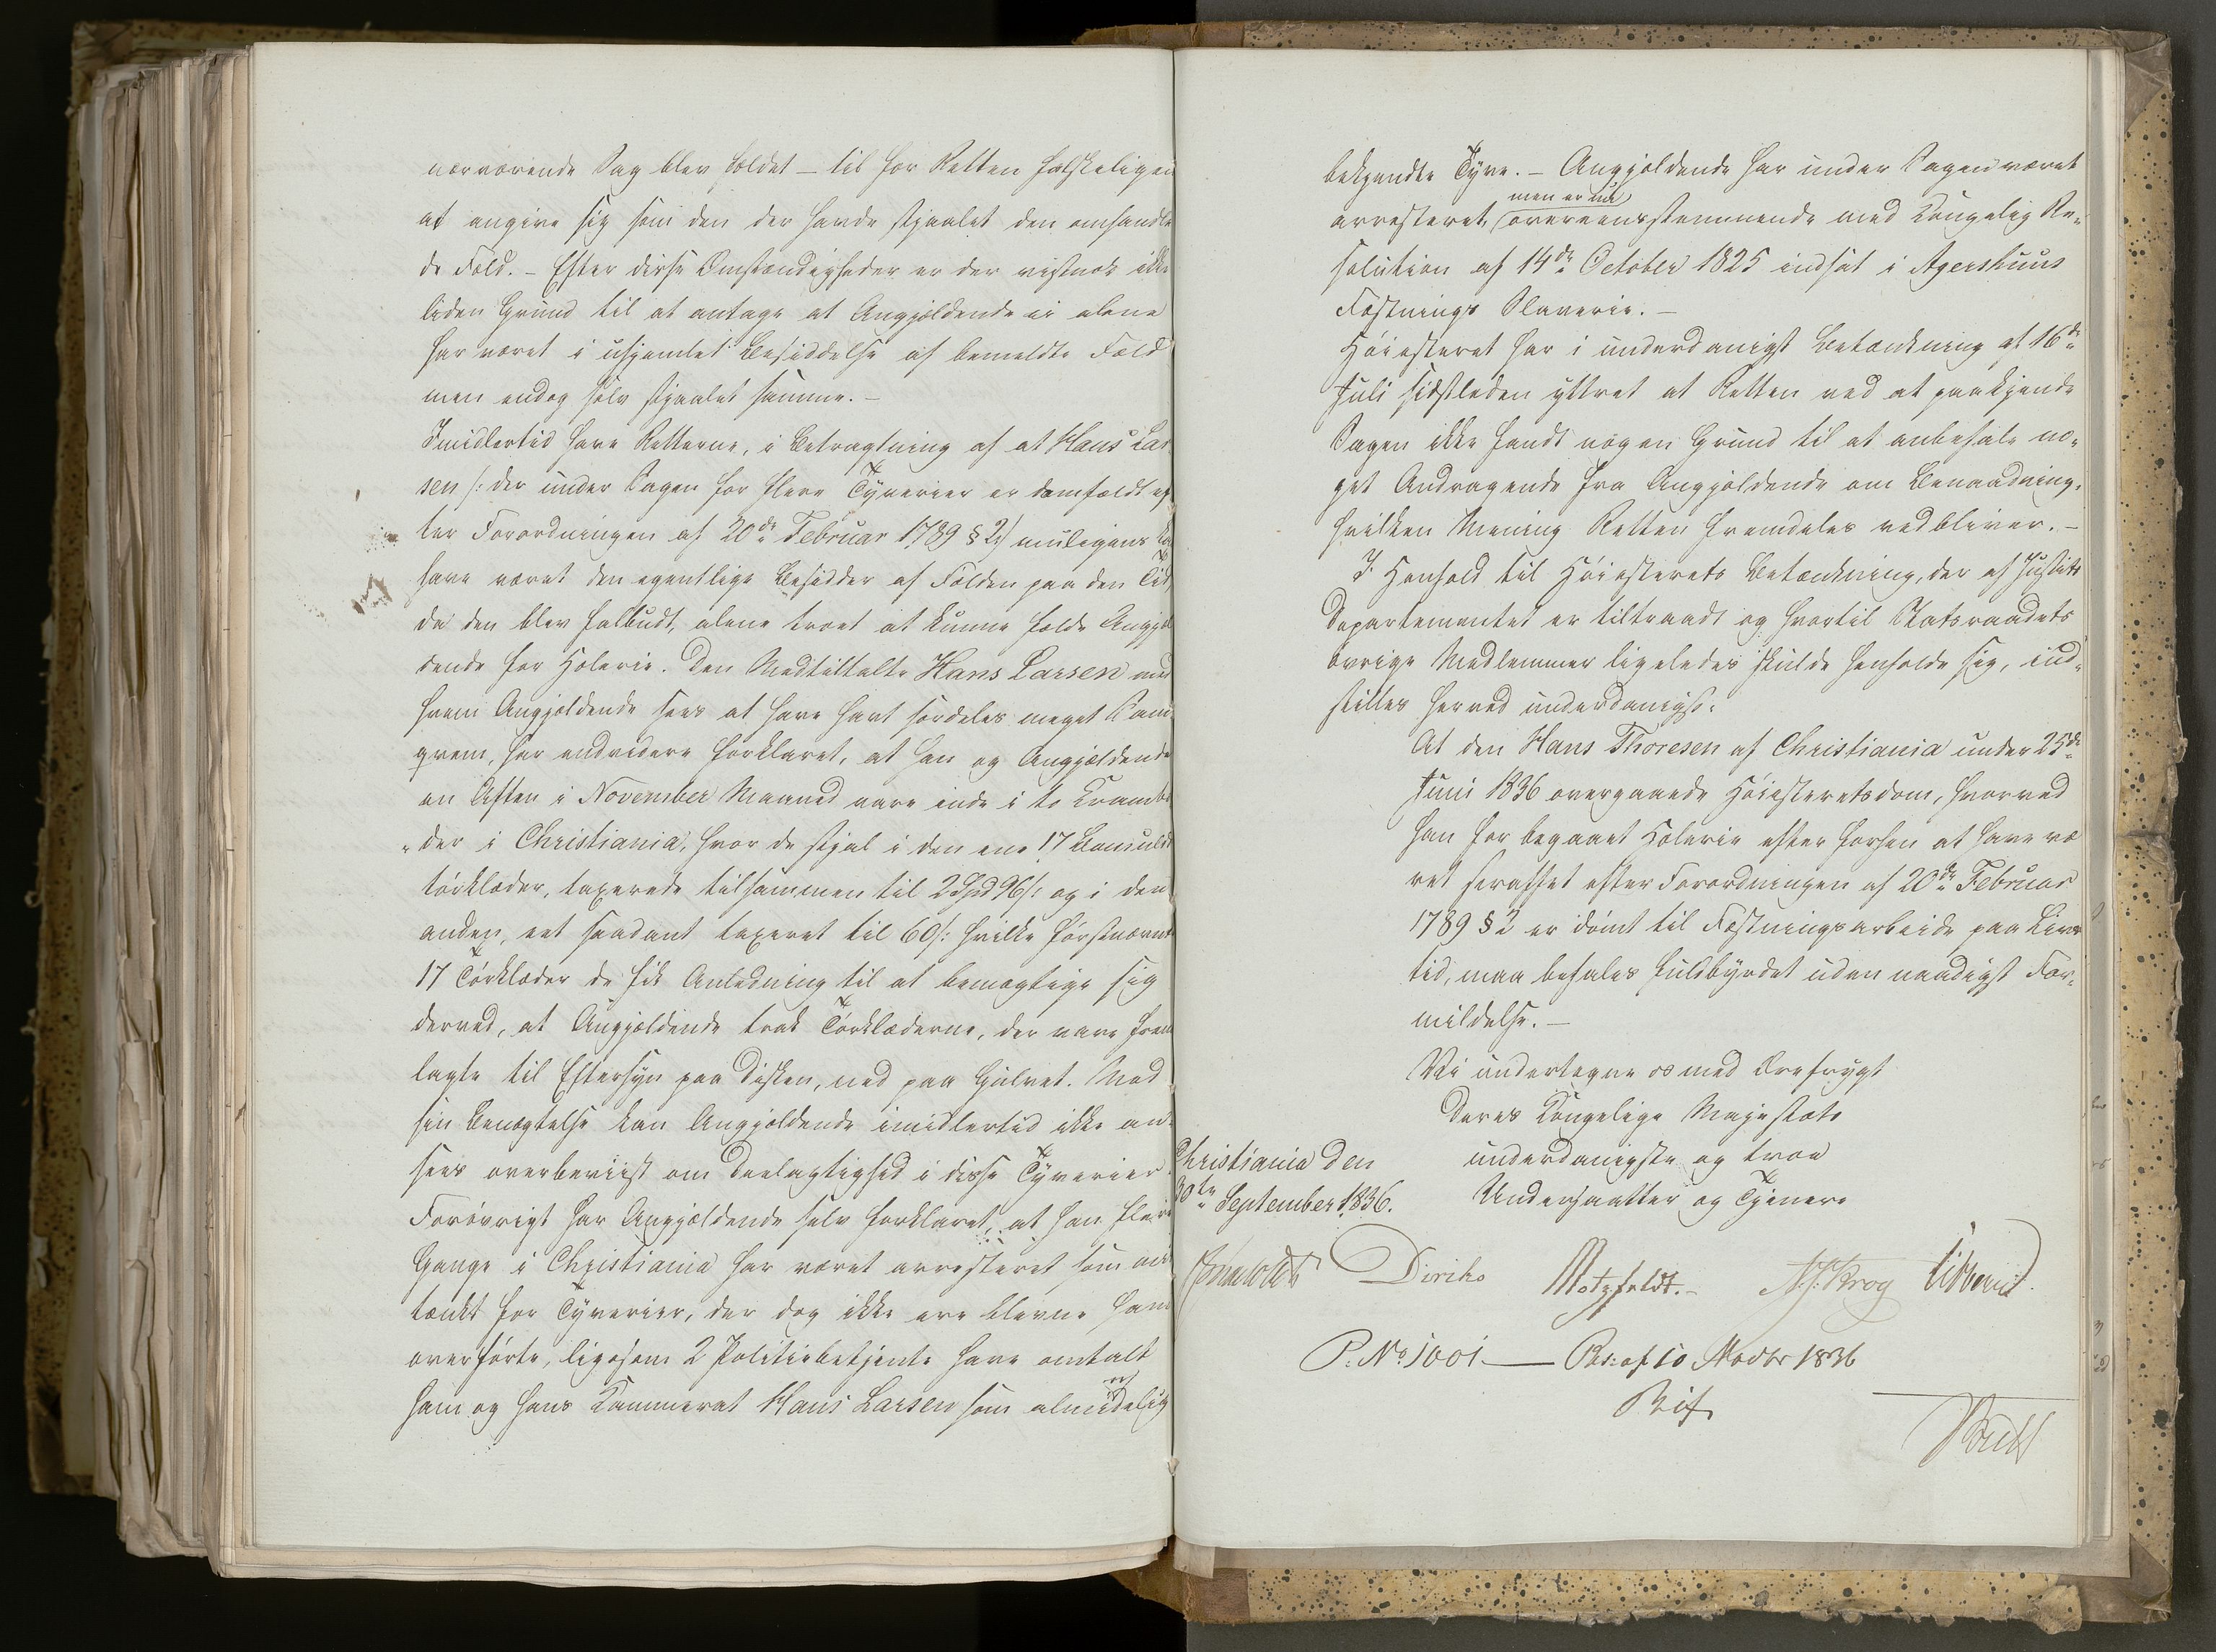 nærværende Sag blev paldet – til for Retten falskeligen
at angive sig som den der havde stjaalet den omhandle
de Fæld. – Efter disse Omstændigheder er der vistnok ikke
liden Grund til at antage at Angjældende ei alene
har været i uhjemlet Besiddelse af bemeldte Fæld
men endog selv stjaalet samme. –
Imidlertid have Retterne, i Betragtning af at Hans Lar
sen /: der under Sagen for flere Tyverier er domfældt ef
ter Forordningen af 20de Februar 1789 § 2 :/ muligens
have været den egentlige Besidder af Fælden paa den Tid
da den blev falbudt, alene troet at kunne fælde Angjæl
dende for Hæleri. Den Medtiltalte Hans Larsen med
hvem Angjældende sees at have havt særdeles meget Sam
qvem, har endvidere forklaret, at han og Angjældende
en Aften i November Maaned vare inde i to Krambo
"der i Christiania, hvor de stjal i den ene 17 Bomulds
tørklæder, taxerede tilsammen til 2 Spd 96 s: og i den
anden, eet saadant taxeret til 60 s: hvilke førstnævnte
17 Tørklæder de fik Anledning til at bemægtige sig
derved, at Angjældende trak Tørklæderne, der vare frem
lagte til Eftersyn paa Disken, ned paa Gulvet. Mod
sin Benægtelse kan Angjældende imidlertid ikke an
sees overbeviist om Deelagtighed i disse Tyverier
Forøvrigt har Angjældende selv forklaret, at han flere
Gange i Christiania har været arresteret som mis
tænkt for Tyverier, der dog ikke ere blevne ham
overførte, ligesom 2 Politiebetjente have omtalt
ham og hans Kammerat Hans Larsen som almindelig
bekjendte Tyve. – Angjældende har under Sagen været
men er nu
arresteret, overeensstemmende med Kongelig Re„
solution af 14de October 1825 indsat i Agershuus
Fæstnings Slaverie. –
Høiesteret har i underdanigst Betænkning af 16de
Juli sidstleden yttret at Retten ved at paakjende
Sagen ikke fandt nogen Grund til at anbefale no„
get Andragende fra Angjældende om Benaadning,
hvilken Mening Retten fremdeles vedbliver. –
I Henhold til Høiesterets Betænkning, der af Justits
Departementet er tiltraadt og hvortil Statsraadets
øvrige Medlemmer ligeledes skulde henholde sig, ind„
stilles herved underdanigst:
At den Hans Thoresen af Christiania under 25de
Juni 1836 overgaaede Høiesteretsdom, hvorved
han for begaaet Hæleri efter forhen at have væ
ret straffet efter Forordningen af 20de Februar
1789 § 2 er dømt til Fæstningsarbeide paa Livs
tid, maa befales fuldbyrdet uden naadigst For„
mildelse. –
Vi undertegne os med Ærefrygt
Deres Kongelige Majestæts
Christiania den underdanigste og troe
30te September 1836. Undersaatter og Tjenere
Diriks Motzfeldt. – N. J. Krog Vibbe
P. No 1001 — Res: af 10 Novbr 1836
Bif.